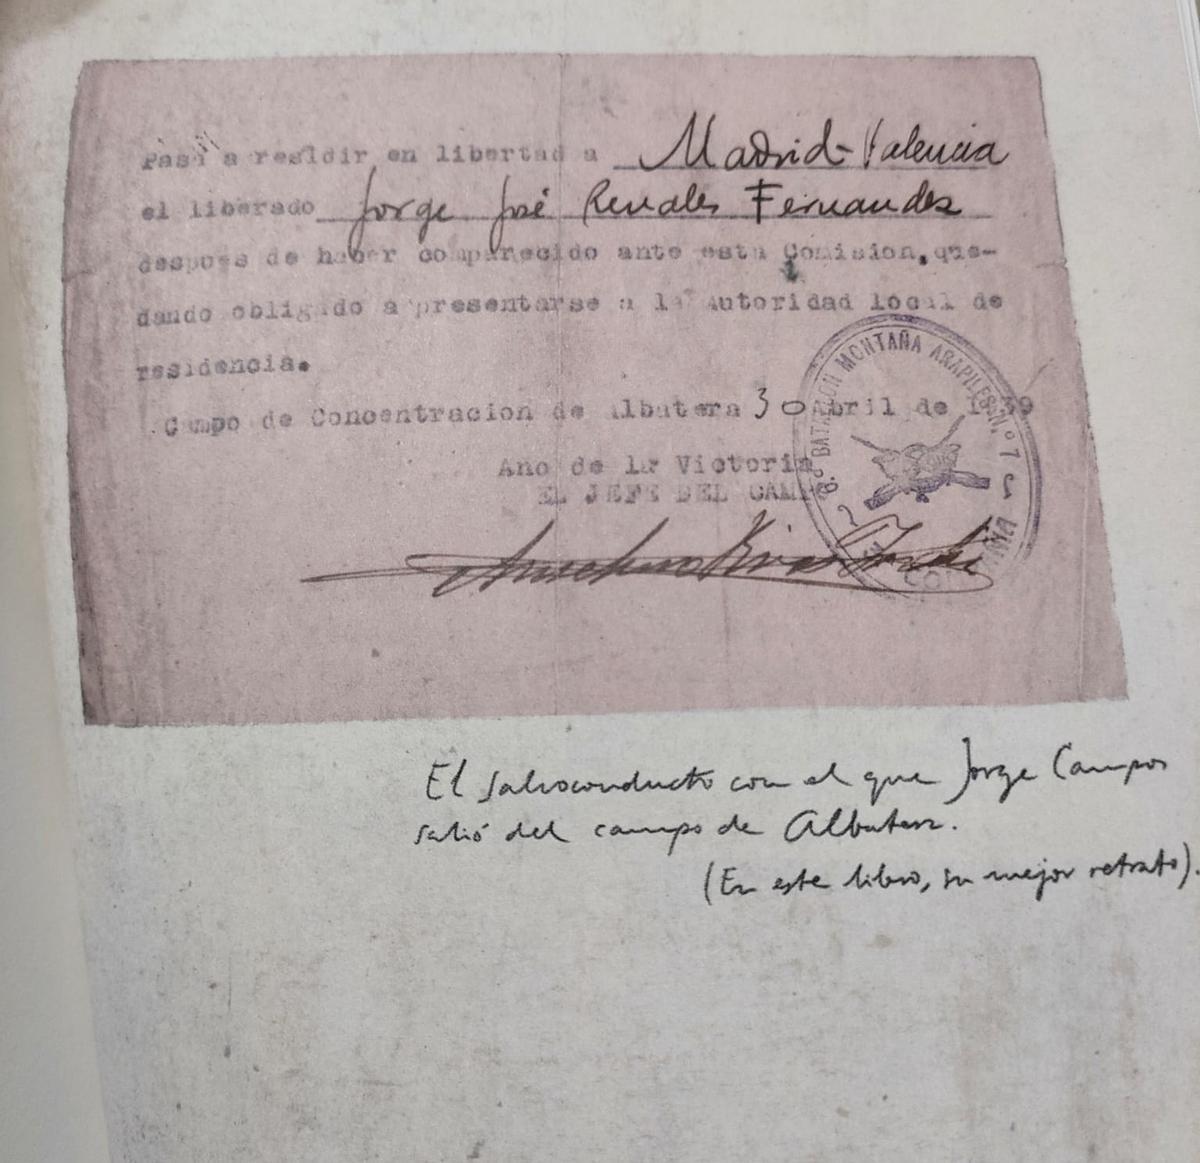 Pasa a residir en libertad a Madrid-Valencia
el liberado Jorge José Renales Fernandez
despues de haber comparecido ante esta Comision, que-
dando obligado a presentarse a la Autoridad local de
residencia.
Campo de Concentracion de Albatera 30 Abril de 1939
Ano de la Victoria
EL JEFE DEL CAMPO
8º BATALLON MONTAÑA ARAPILES Nº 7
COMPAÑIA
El salvoconducto con el que Jorge Campos
salió del campo de Albatera.
(En este libro, su mejor retrato).